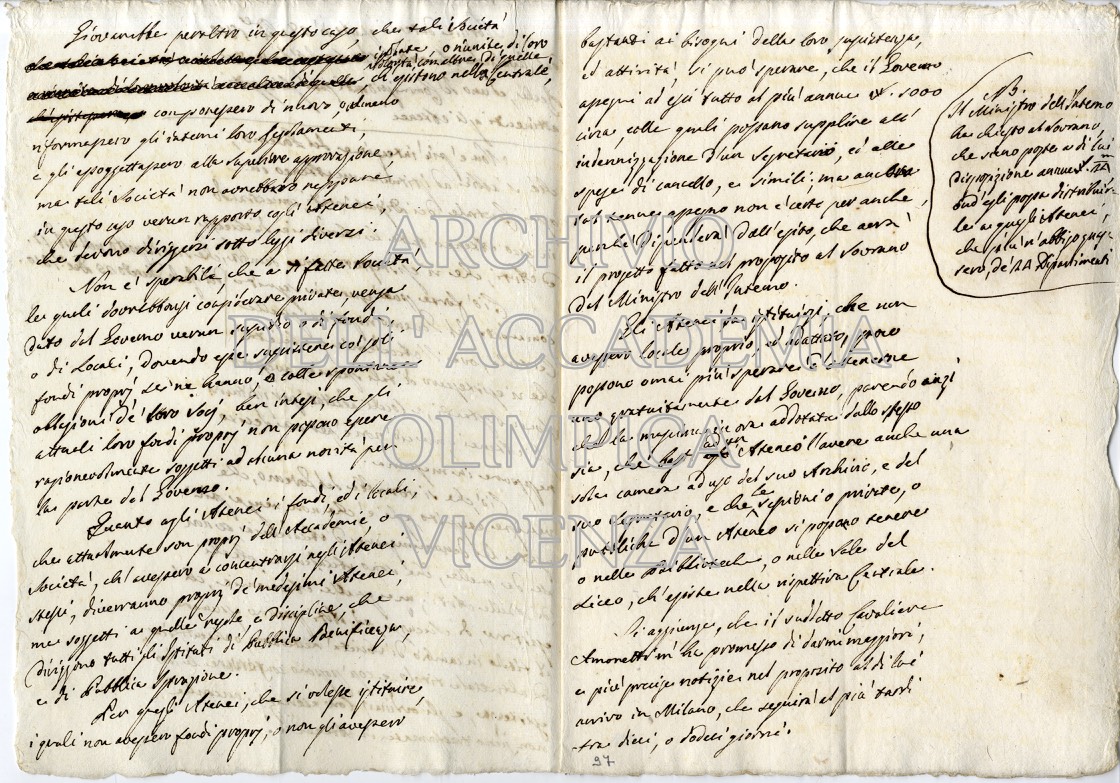 Gioverebbe peraltro in questo caso che tali Società
istrutte, o riunite, di loro
volontà con altre, di quelle
ch' esistono nella Centrale,
componessero di nuovo, o almeno
riformassero gli interni loro Regolamenti,
e gli assoggettassero alla superiore approvazione,
ma tali Società non avrebbero neppure
in questo caso verun rapporto cogli Atenei,
che devono dirigersi sotto leggi diverse.
Non è sperabile che a sì fatte Società,
le quali dovrebbonsi considerare private, venga
dato dal Governo verun sussidio o di fondi,
o di Locali, dovendo esse sussistere coi soli
fondi proprj se ne hanno, o colle spontanee
oblazioni de' loro Socj, ben intesi, che gli
attuali loro fondi proprj non possono essere
ragionevolmente soggetti ad alcuna novità per
la parte del Governo.
Quanto agli Atenei i fondi, ed i locali,
che attualmente son proprj dell'Accademie, o
Società, ch' avessero a concentrarsi negli Atenei
stessi, diverranno proprj de' medesimi Atenei,
ma soggetti a quelle regole e discipline, che
dirigono tutti gli Istituti di Pubblica Beneficenza,
e di Pubblica Istruzione.
Per quegli Atenei, che si volesse istituire,
i quali non avessero fondi proprj, o non gli avessero
bastanti ai bisogni della loro sussistenza,
ed attività, si può sperare, che il Governo
assegni ad essi tutto al più annue 1000
circa, colle quali possano supplire all'
indennizzazione d'un Segretario, ed alle
spese di cancello, e simili; ma anche
tal tenue assegno non è certo per anche,
perchè dipenderà dall'esito, che avrà
il progetto fatto in proposito al Sovrano
dal Ministro dell'Interno.
Gli Atenei da istituirsi, che non
avessero locale proprio, ed adattato, poco
possono omai più sperare d'ottenerne
uno gratuitamente dal Governo, parendo anzi
che la massima ora addotata dallo stesso
sia, che basti ad un Ateneo l'avere anche una
sola camera ad uso del suo Archivio, e del
suo Segretario, e che le sessioni o private, o
pubbliche d'un Ateneo si possano tenere
o nelle Biblioteche, o nelle Sale del
Liceo, ch' esiste nella rispettiva Centrale.
Si aggiunge, che il suddetto Cavaliere
Amoretti mi ha promesso di darmi maggiori,
e più precise notizie nel proposito al di lui
arrivo in Milano, che seguirà al più tardi
tra dieci, o dodeci giorni.
NB.
Il Ministro dell'Interno
ha chiesto al Sovrano,
che siano poste a di lui
disposizione annue
ond' egli possa distribuir-
le a quegli Atenei,
che più n' abbisognas-
sero, de' 24 Dipartimenti
97
ARCHIVIO
DELL'ACCADEMIA
OLIMPICA
VICENZA